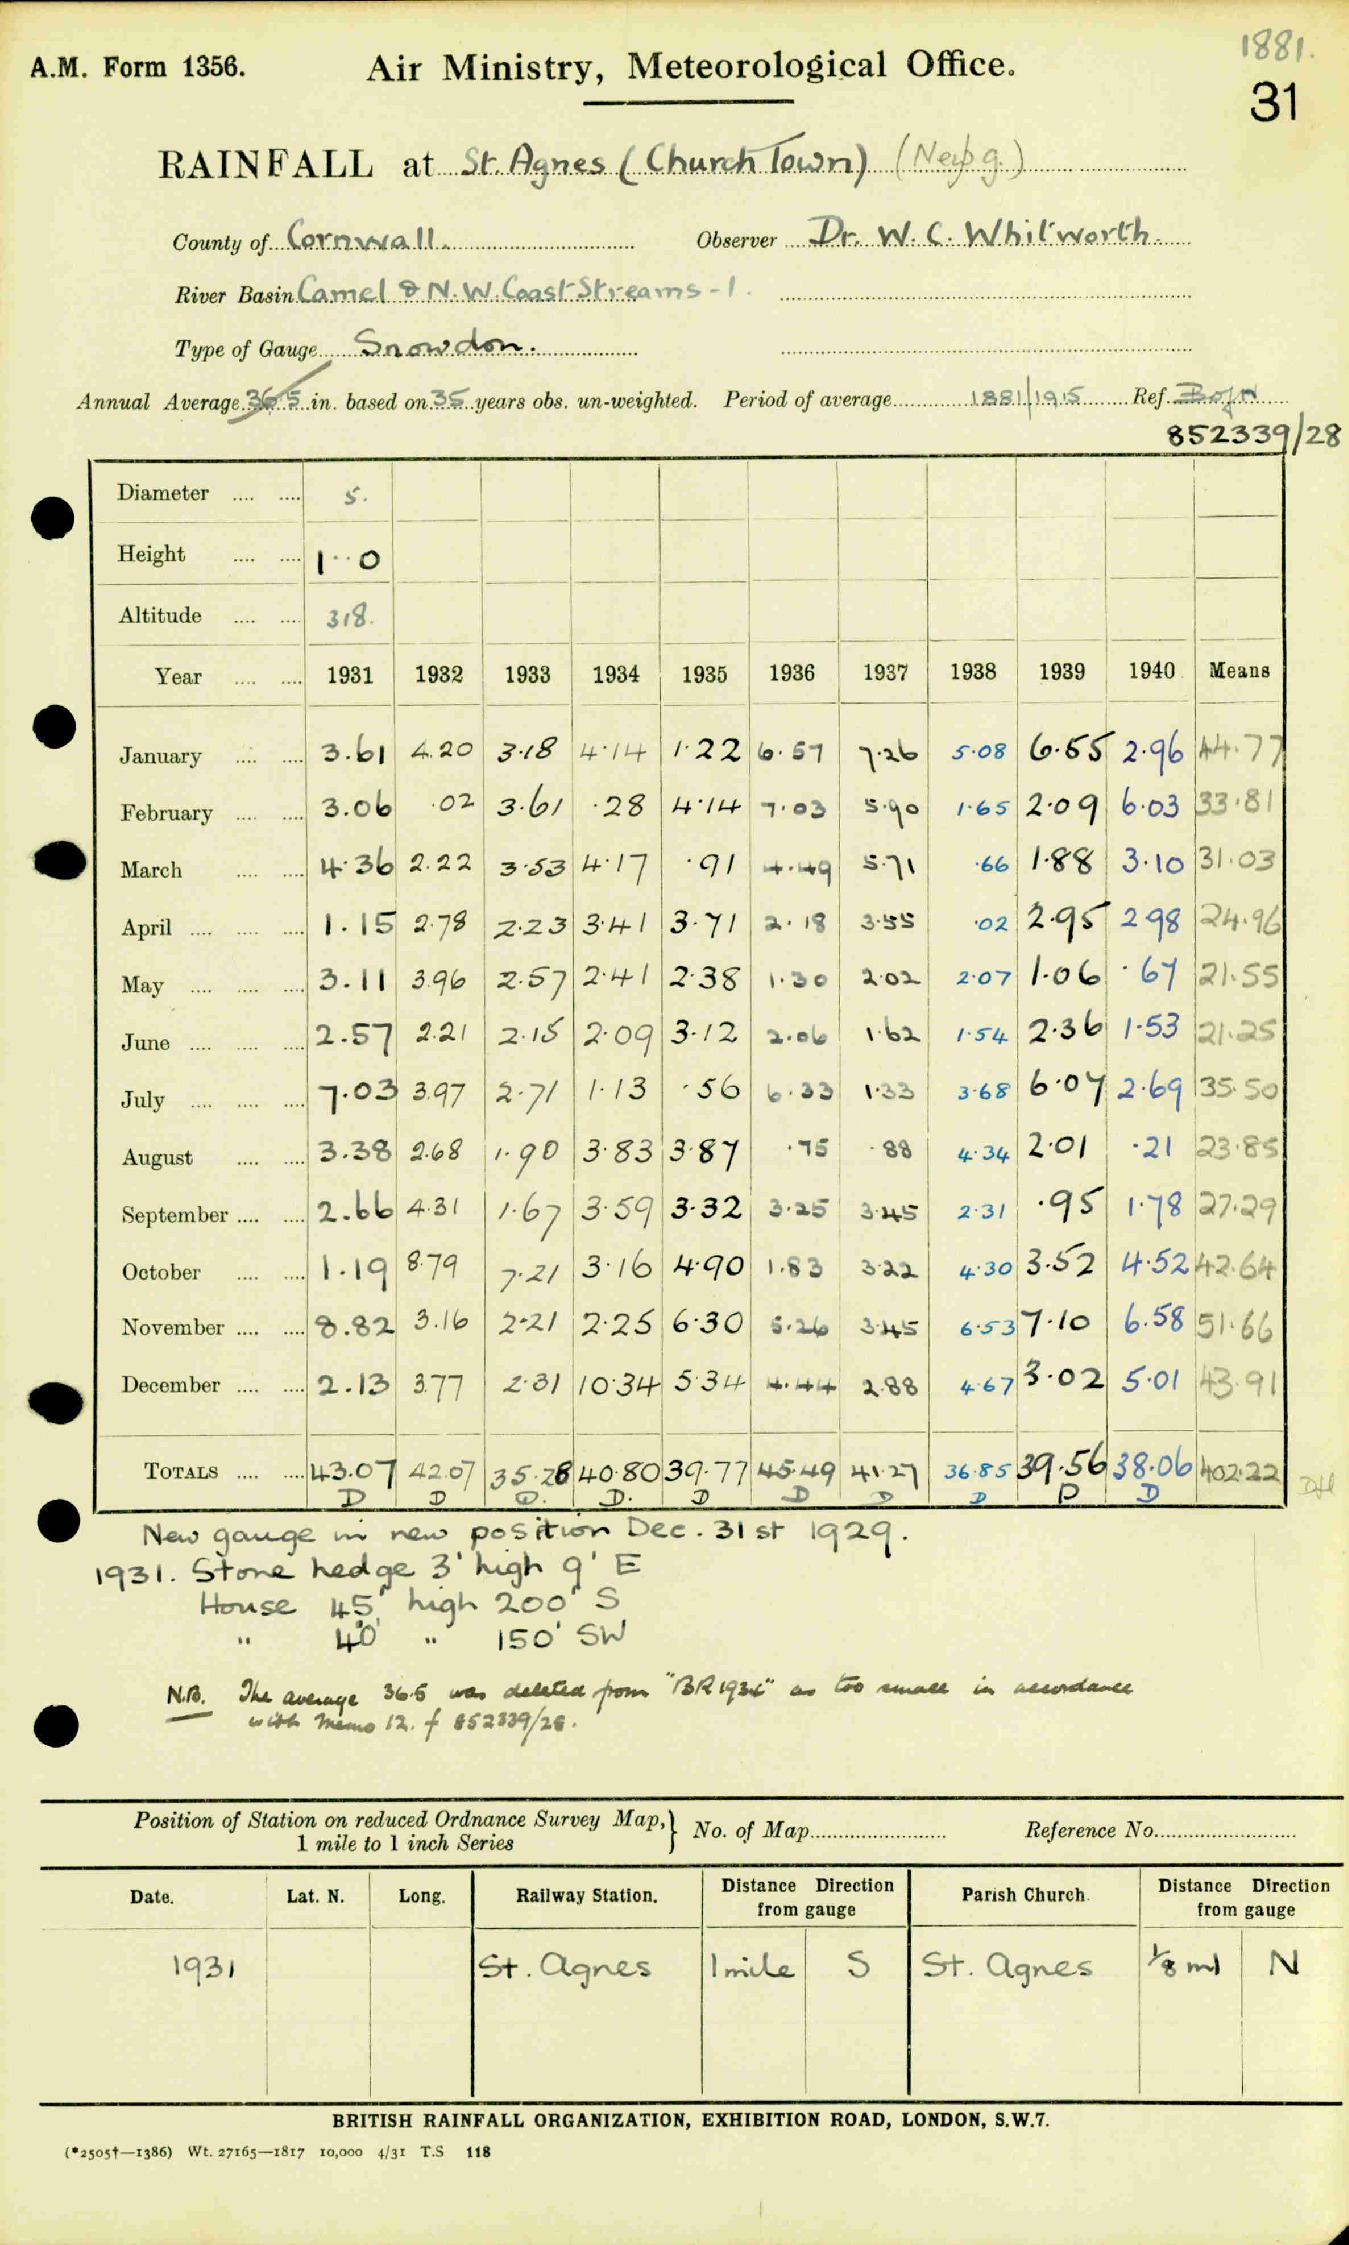 1881.
A.M. Form 1356. Air Ministry, Meteorological Office.
31
RAINFALL at St. Agnes (Church Town) (New g.)
County of Cornwall. Observer Dr. W. C. Whitworth.
River Basin Camel & N.W. Coast Streams - 1.
Type of Gauge Snowdon.
Annual Average 36.5 in. based on 35 years obs. un-weighted. Period of average 1881/1915 Ref.
852339/28
Diameter .... .... 5.
Height .... .... 1··0
Altitude .... .... 318.
Year .... .... 1931 1932 1933 1934 1935 1936 1937 1938 1939 1940 Means
January .... .... 3.61 4.20 3.18 4.14 1.22 6.57 7.26 5.08 6.55 2.96 44.77
February .... .... 3.06 .02 3.61 .28 4.14 7.03 5.90 1.65 2.09 6.03 33.81
March .... .... 4.36 2.22 3.53 4.17 .91 4.49 5.71 .66 1.88 3.10 31.03
April .... .... .... 1.15 2.78 2.23 3.41 3.71 2.18 3.55 .02 2.95 2.98 24.96
May .... .... .... 3.11 3.96 2.57 2.41 2.38 1.30 2.02 2.07 1.06 .67 21.55
June .... .... .... 2.57 2.21 2.15 2.09 3.12 2.06 1.62 1.54 2.36 1.53 21.25
July .... .... .... 7.03 3.97 2.71 1.13 .56 6.33 1.33 3.68 6.07 2.69 35.50
August .... .... 3.38 2.68 1.90 3.83 3.87 .75 .88 4.34 2.01 .21 23.85
September .... .... 2.66 4.31 1.67 3.59 3.32 3.25 3.45 2.31 .95 1.78 27.29
October .... .... 1.19 8.79 7.21 3.16 4.90 1.83 3.22 4.30 3.52 4.52 42.64
November .... .... 8.82 3.16 2.21 2.25 6.30 5.26 3.45 6.53 7.10 6.58 51.66
December .... .... 2.13 3.77 2.31 10.34 5.34 4.44 2.88 4.67 3.02 5.01 43.91
TOTALS .... .... 43.07 42.07 35.28 40.80 39.77 45.49 41.27 36.85 39.56 38.06 402.22
D D D. D. D D D D D D
New gauge in new position Dec. 31st 1929.
1931. Stone hedge 3' high 9' E
House 45' high 200' S
" 40' " 150' SW
N.B. The average 36.5 was deleted from "BR 1934" as too small in accordance
with Memo 12. f 852339/28.
Position of Station on reduced Ordnance Survey Map, } No. of Map Reference No.
1 mile to 1 inch Series
Date. Lat. N. Long. Railway Station. Distance Direction from gauge Parish Church. Distance Direction from gauge
1931 St. Agnes 1 mile S St. Agnes 1/8 ml N
BRITISH RAINFALL ORGANIZATION, EXHIBITION ROAD, LONDON, S.W.7.
(*2505†—1386) Wt. 27165—1817 10,000 4/31 T.S 118